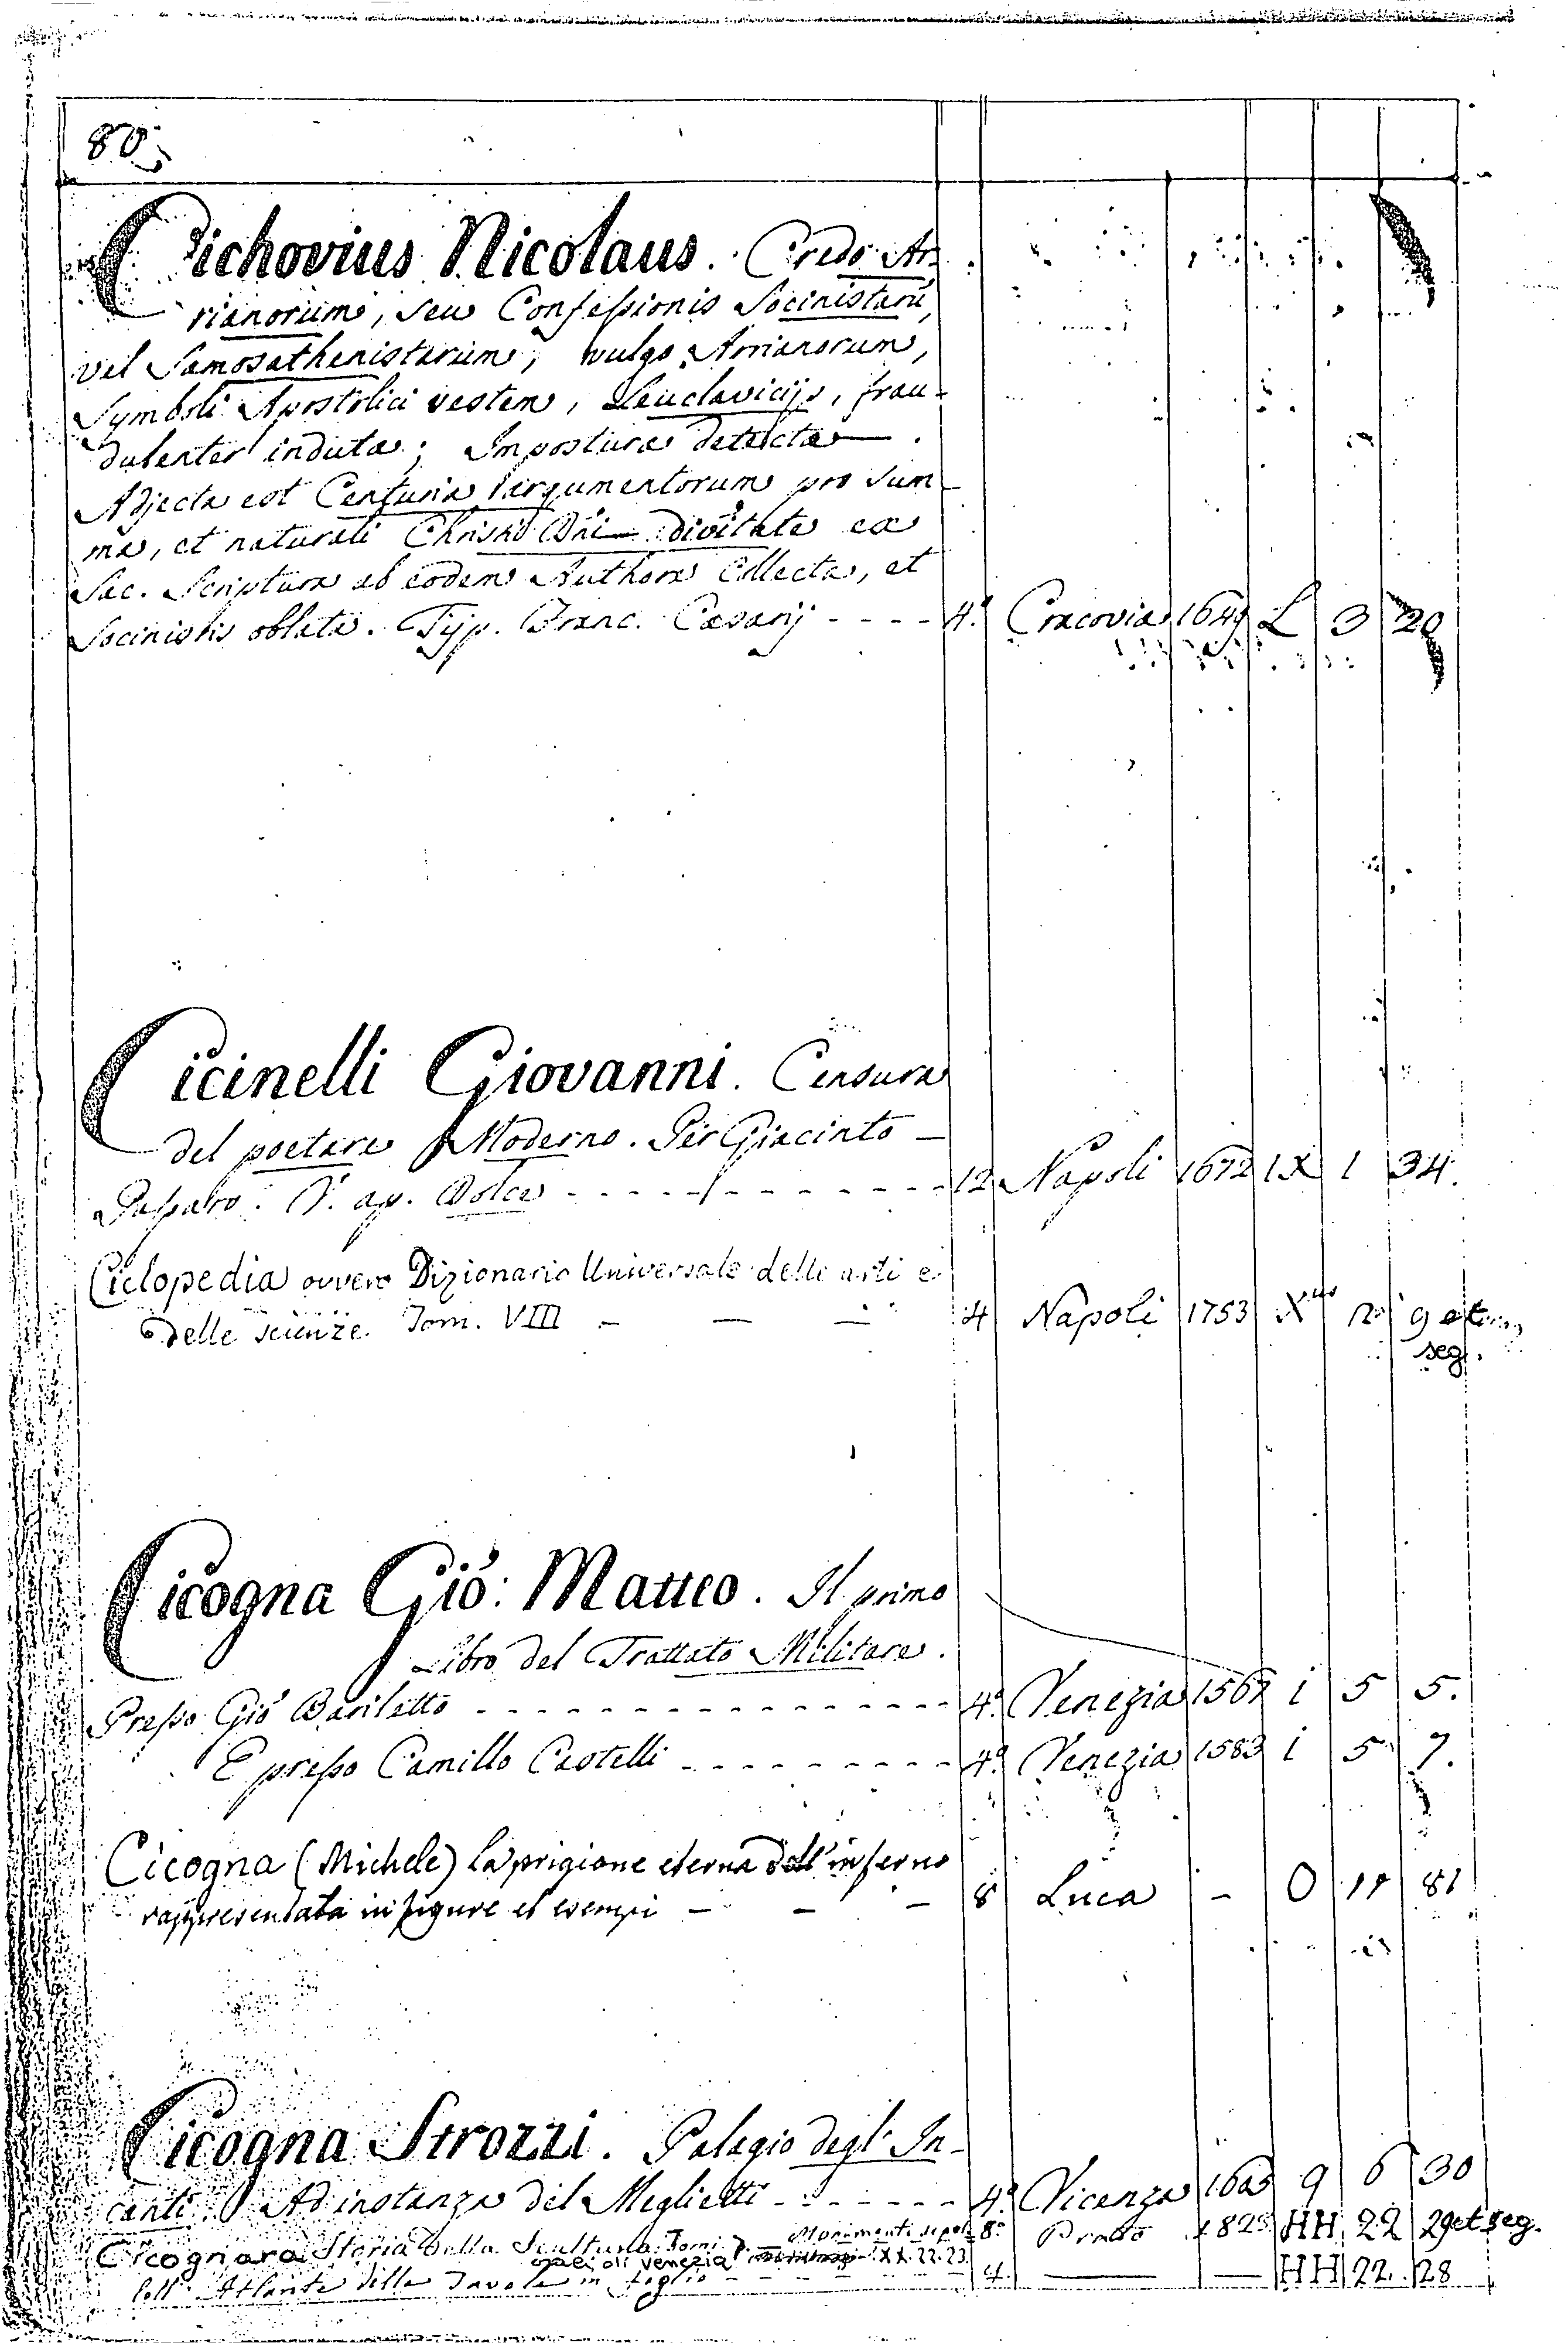 80.
Cichovius Nicolaus. Credo Ar-
rianorum, seu Confessionis Socinistarū,
vel Samosathenistarum, vulgo Arrianorum,
Symboli Apostolici vestem, Leuclavicijs, frau-
dulenter induta; Impostura detecta.
Adjecta est Centuria argumentorum pro sum-
ma, et naturali Christi Dñi divītate ex
Sac. Scriptura ab eodem Authore Collecta, et
Socinistis oblata. Typ. Franc. Cæsarij - - - - 4.º Cracovia 1649 L 3 20
Cicinelli Giovanni. Censura
del poetare Moderno. Per Giacinto
Passaro. ap. Dolce - - - - - - - - - 12 Napoli 1672 IX 1 34.
Ciclopedia ovvero Dizionario Universale delle arti e
delle scienze. Tom. VIII - - - 4 Napoli 1753 X 12 9 et
seg.
Cicogna Gió: Matteo. Il primo
Libro del Trattato Militare.
Presso Gió Bariletto - - - - - - - - - - - - - - - 4.º Venezia 1567 i 5 5.
E presso Camillo Castelli - - - - - - - - - 4.º Venezia 1583 i 5 7.
Cicogna (Michele) La prigione eterna dell'inferno
rappresentata in figure et esempi - - - 8 Luca - O 11 81
Cicogna Strozzi. Palagio degl' In-
canti. Ad instanza del Meglietti - - - - - - - 4.º Vicenza 1605 9 6 30
Cicognara Storia della Scultura. Tomi 7. Monimenti sepol- 8.º Prato 1823 HH 22 29 et seg.
crali di Venezia XX. 22. 23.
Coll' Atlante delle Tavole in foglio - - - - - - - 4. — — HH 22. 28